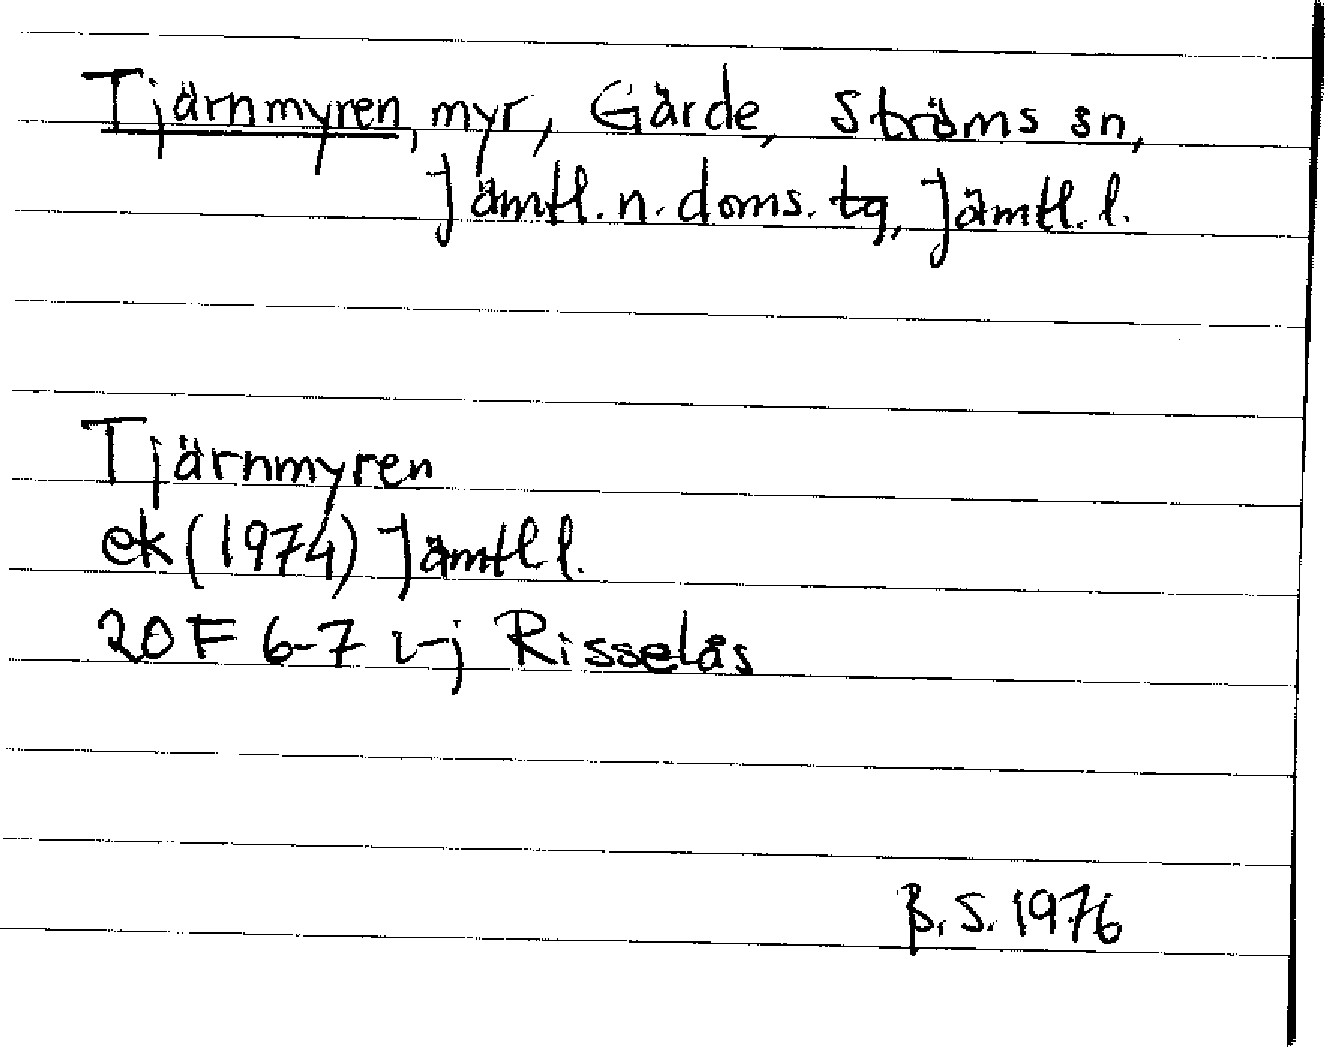 Tjärnmyren, myr, Gärde, Ströms sn,
Jämtl. n. doms. tg, Jämtl. l.
Tjärnmyren
ek (1974) Jämtl l.
20 F 6-7 i-j Risselås
B. S. 1976